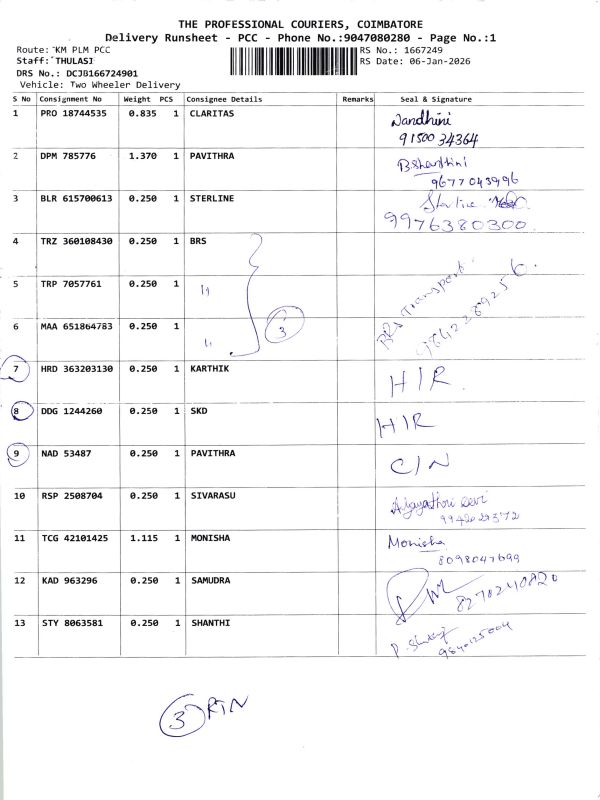 THE PROFESSIONAL COURIERS, COIMBATORE
Delivery Runsheet - PCC - Phone No.:9047080280 - Page No.:1
Route: KM PLM PCC
RS No.: 1667249
Staff: THULASI
RS Date: 06-Jan-2026
DRS No.: DCJB166724901
Vehicle: Two Wheeler Delivery
S No Consignment No Weight PCS Consignee Details Remarks Seal & Signature
1 PRO 18744535 0.835 1 CLARITAS Nandhini
91500 34364
2 DPM 785776 1.370 1 PAVITHRA B.Shanthini
9677043996
3 BLR 615700613 0.250 1 STERLINE
9976380300
4 TRZ 360108430 0.250 1 BRS
5 TRP 7057761 0.250 1 BRS Transport
3
6 MAA 651864783 0.250 1 9842289256
7 HRD 363203130 0.250 1 KARTHIK HIR
8 DDG 1244260 0.250 1 SKD HIR
9 NAD 53487 0.250 1 PAVITHRA C/N
10 RSP 2508704 0.250 1 SIVARASU
11 TCG 42101425 1.115 1 MONISHA Monisha
8098047699
12 KAD 963296 0.250 1 SAMUDRA
8270240820
13 STY 8063581 0.250 1 SHANTHI
9840125004
3 RTN